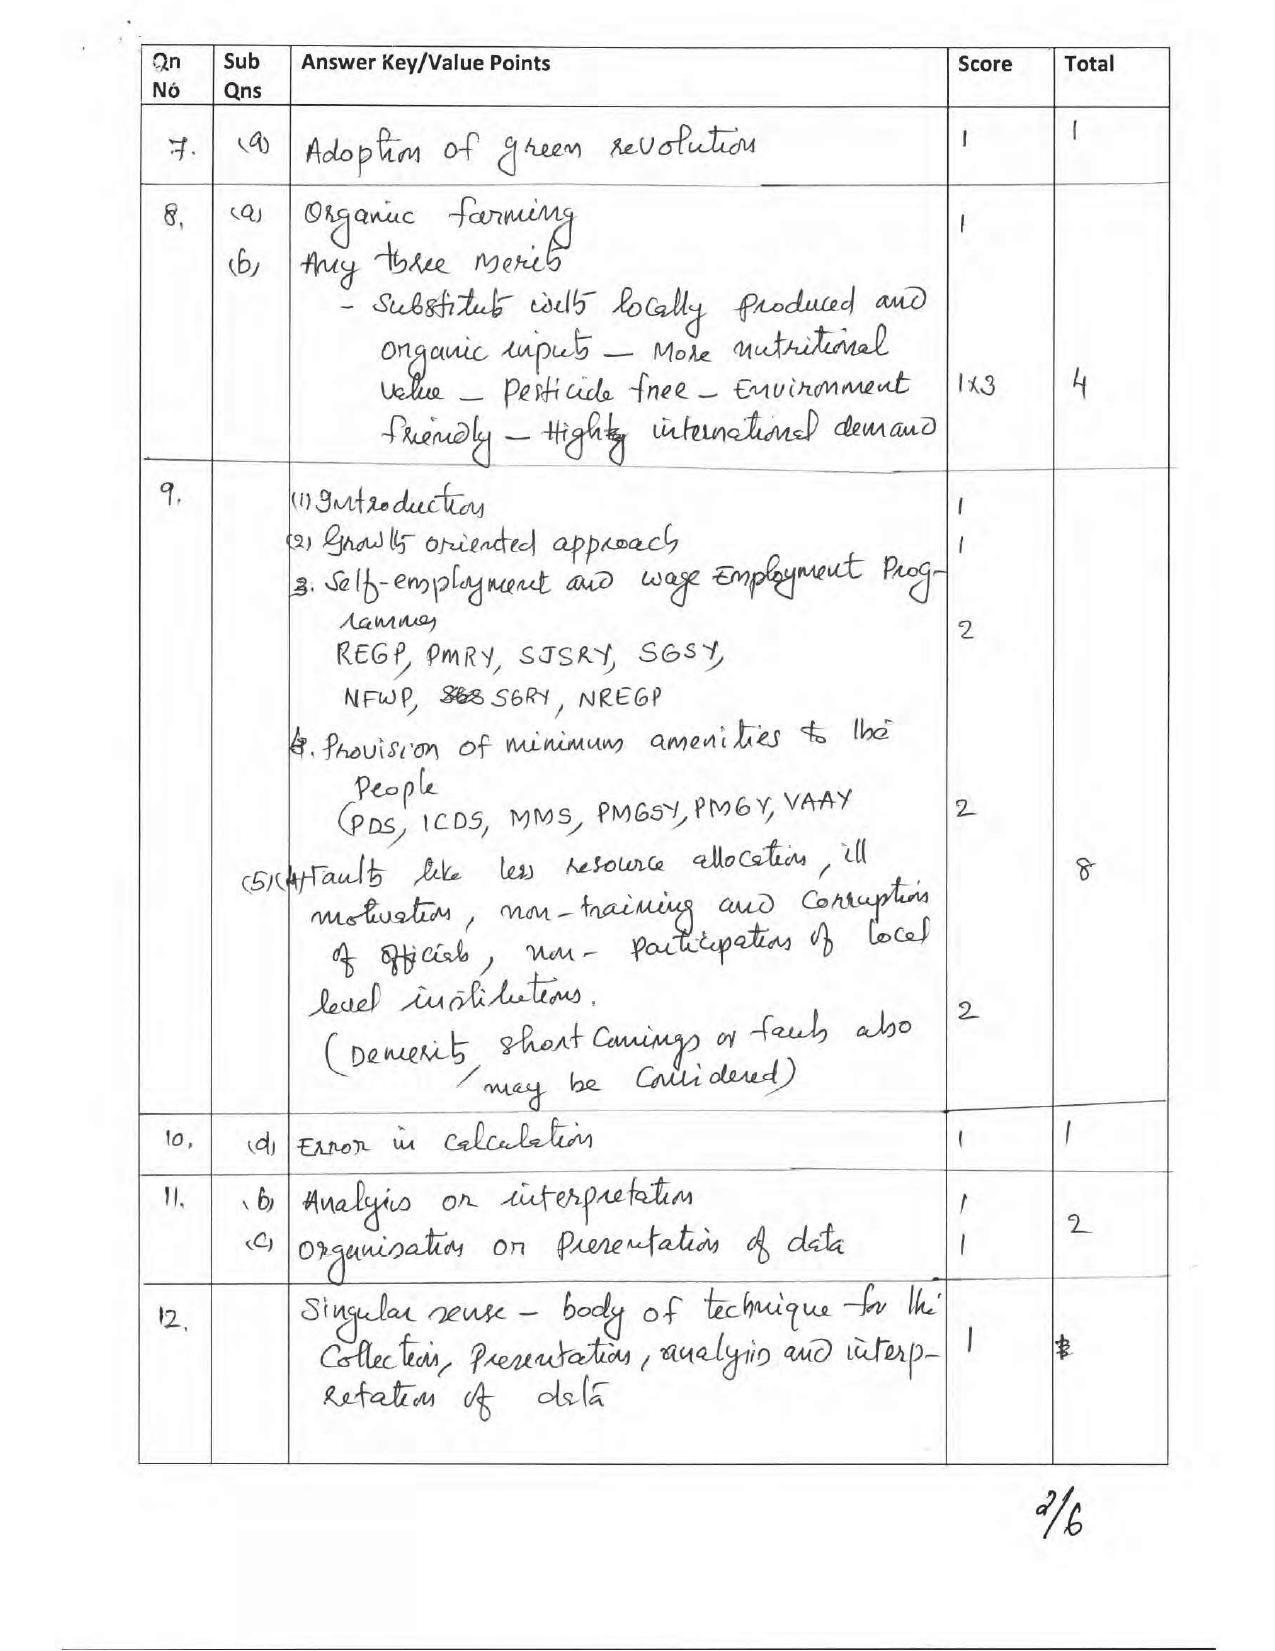 Qn No Sub Qns Answer Key/Value Points Score Total
7. (a) Adoption of green revolution 1 1
8. (a) Organic farming 1
(b) Any three merits
- Substitute with locally produced and
organic inputs – More nutritional
value – Pesticide free – Environment 1x3 4
friendly – Highly international demand
9. (1) Introduction 1
(2) Growth oriented approach 1
3. Self-employment and wage Employment Prog-
rammes 2
REGP, PMRY, SJSRY, SGSY,
NFWP, SGRY, NREGP
4. Provision of minimum amenities to the
People
(PDS, ICDS, MMS, PMGSY, PMGY, VAAY 2
(5) (4) Faults like less resource allocation, ill 8
motivation, non-training and corruption
of officials, non-participation of local
level institutions. 2
(Demerits, short comings or faults also
may be considered)
10. (d) Error in calculation 1 1
11. (b) Analysis or interpretation 1
(c) Organisation or Presentation of data 1 2
12. Singular sense – body of technique for the
Collection, Presentation, analysis and interp- 1
retation of data
2/6